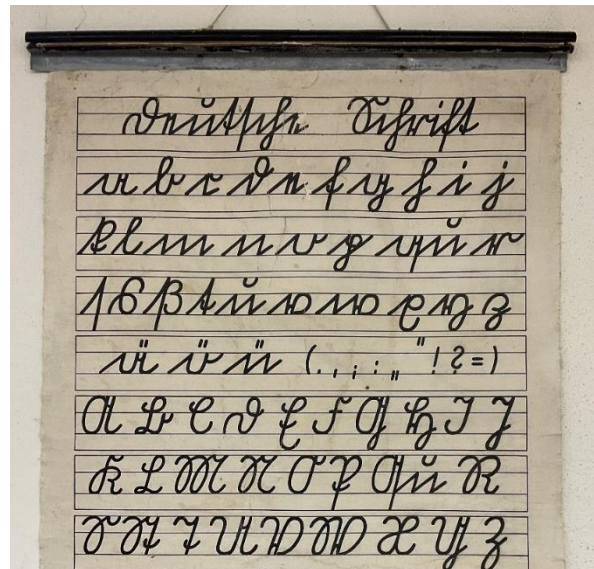 Deutsche Schrift
a b c d e f g h i j
k l m n o p qu r
ſ s ß t u v w x y z
ä ö ü ( . , ; : „ " ! ? = )
A B C D E F G H I J
K L M N O P Qu R
S St T U V W X Y Z